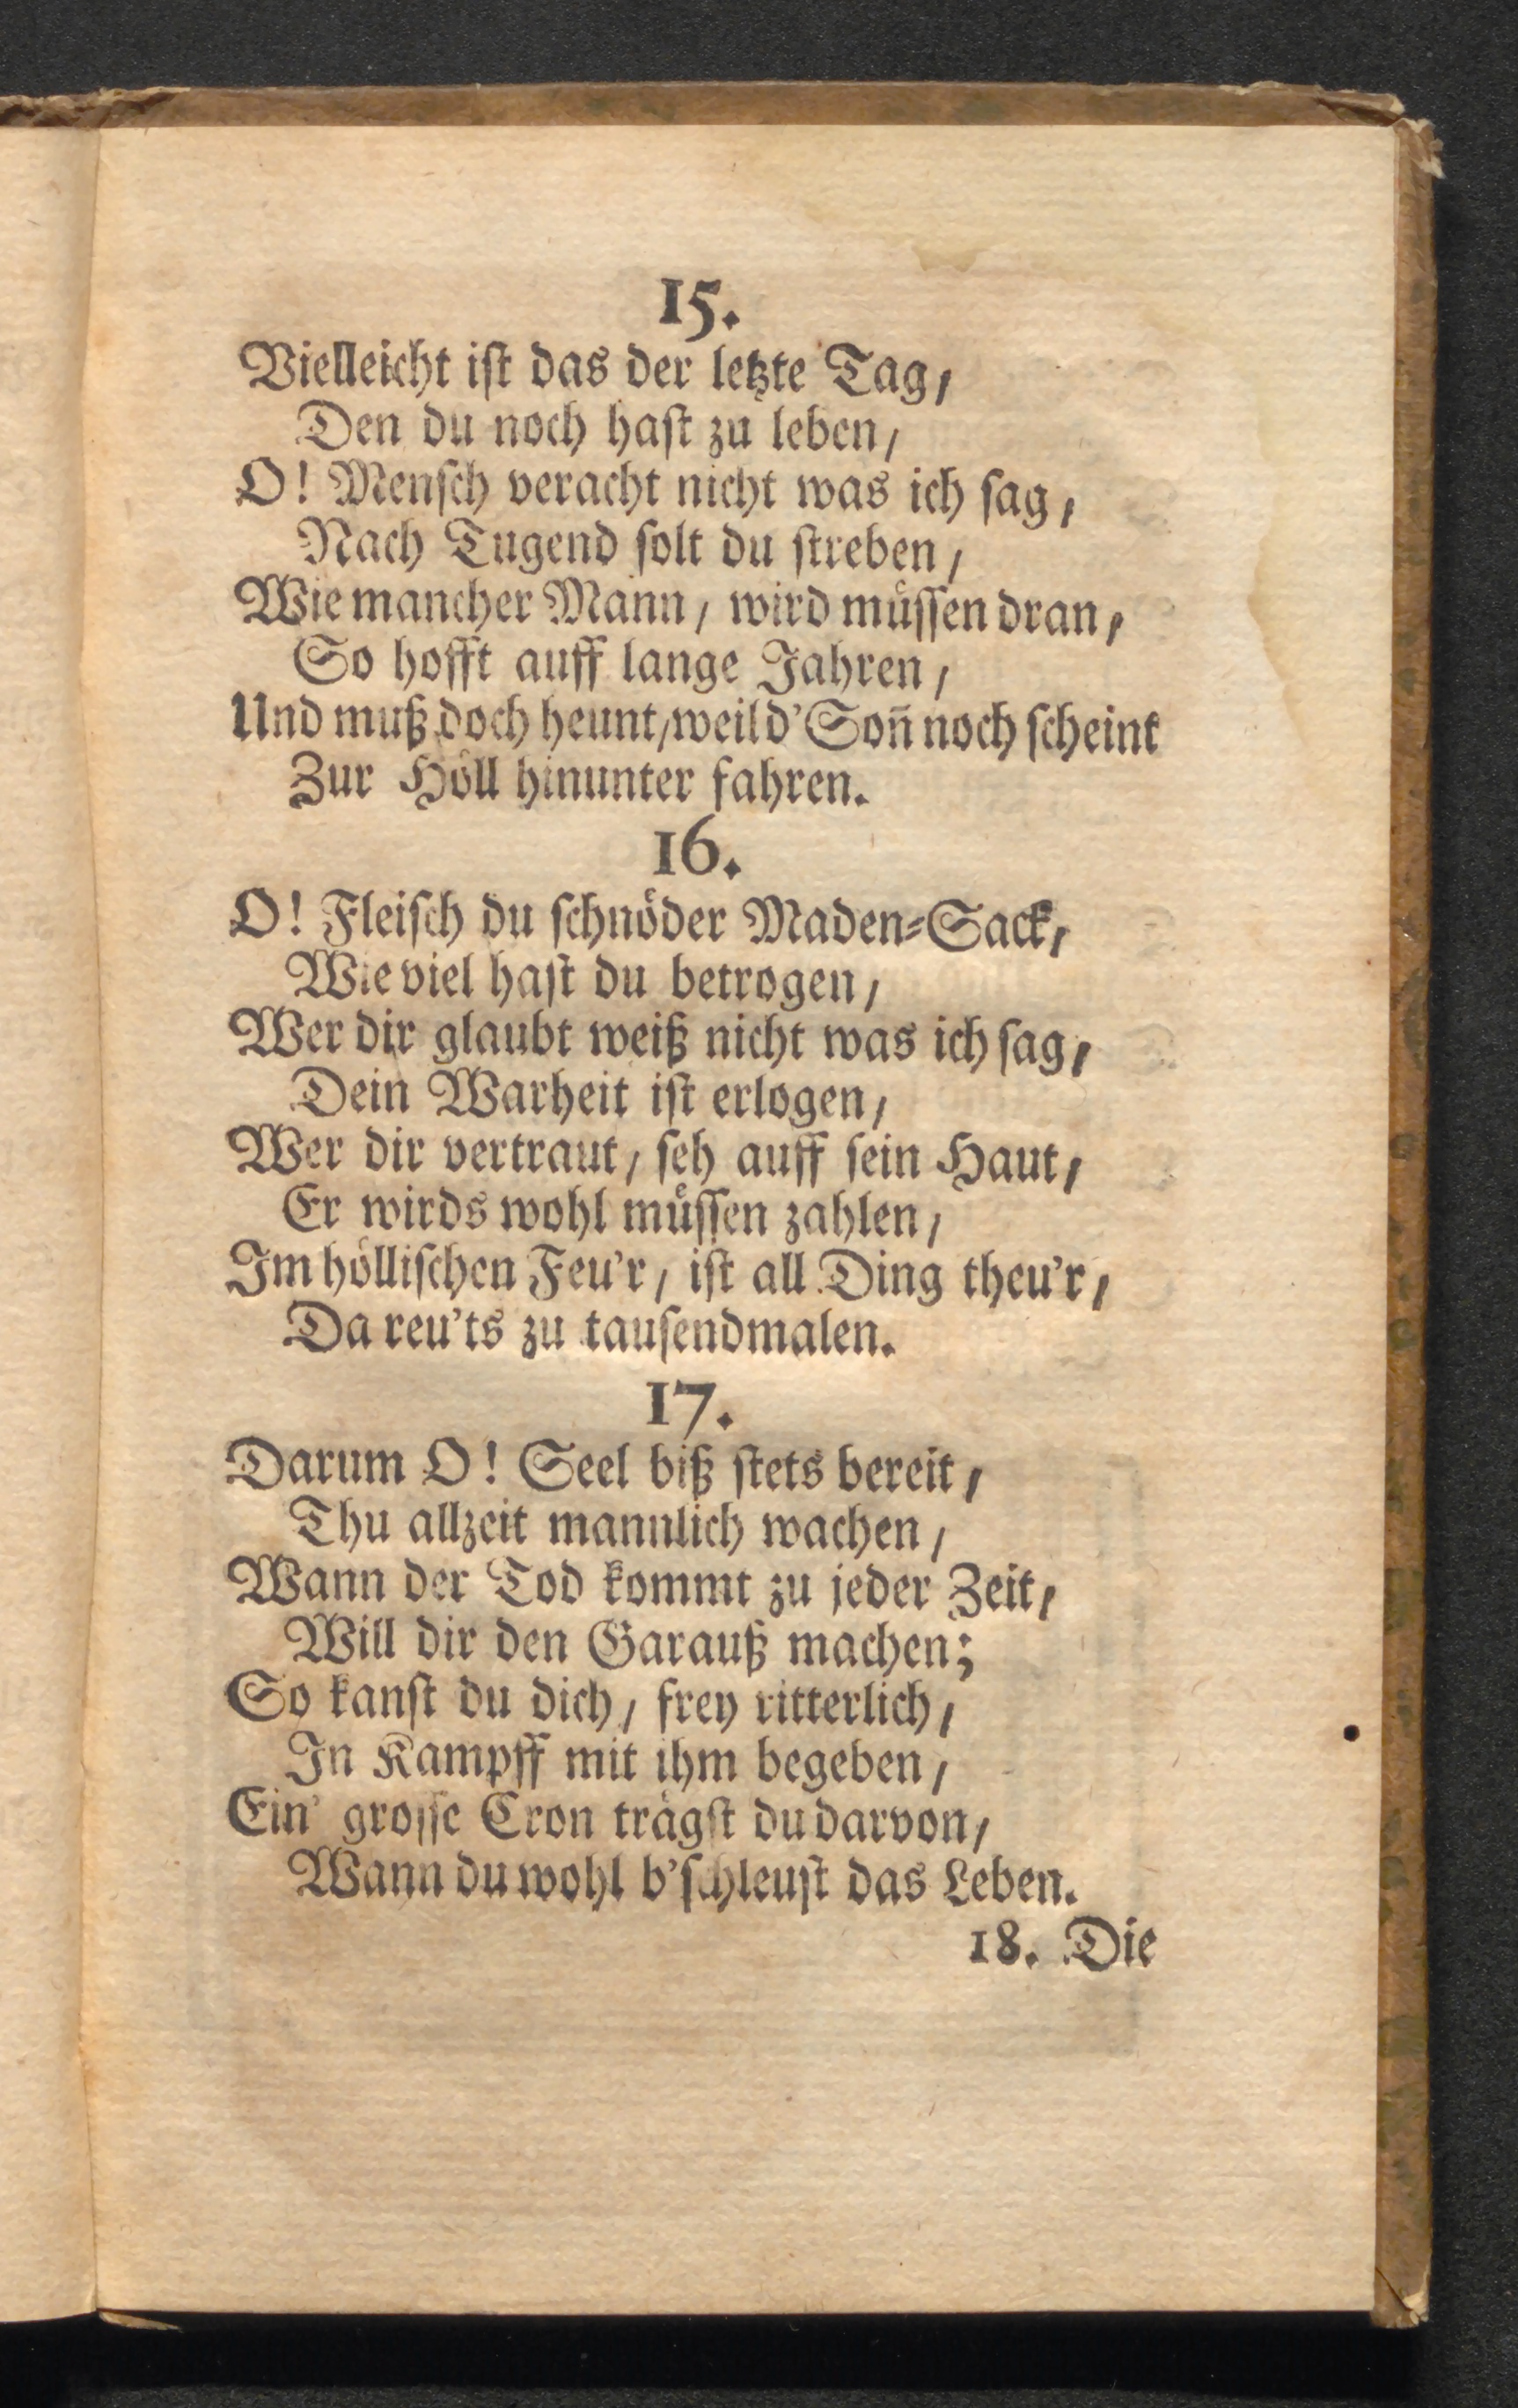 15.
Vielleicht ist das der letzte Tag/
Den du noch hast zu leben/
O! Mensch veracht nicht was ich sag/
Nach Tugend solt du streben/
Wie mancher Mann/ wird müssen dran/
So hofft auff lange Jahren/
Und muß doch heunt/weil d'Soñ noch scheint
Zur Höll hinunter fahren.
16.
O! Fleisch du schnöder Maden-Sack/
Wie viel hast du betrogen/
Wer dir glaubt weiß nicht was ich sag/
Dein Warheit ist erlogen/
Wer dir vertraut/ seh auff sein Haut/
Er wirds wohl müssen zahlen/
Im höllischen Feu'r/ ist all Ding theu'r/
Da reu'ts zu tausendmalen.
17.
Darum O! Seel biß stets bereit/
Thu allzeit mannlich wachen/
Wann der Tod kommt zu jeder Zeit/
Will dir den Garauß machen;
So kanst du dich/ frey ritterlich/
In Kampff mit ihm begeben/
Ein' grosse Cron trägst du darvon/
Wann du wohl b'schleust das Leben.
18. Die